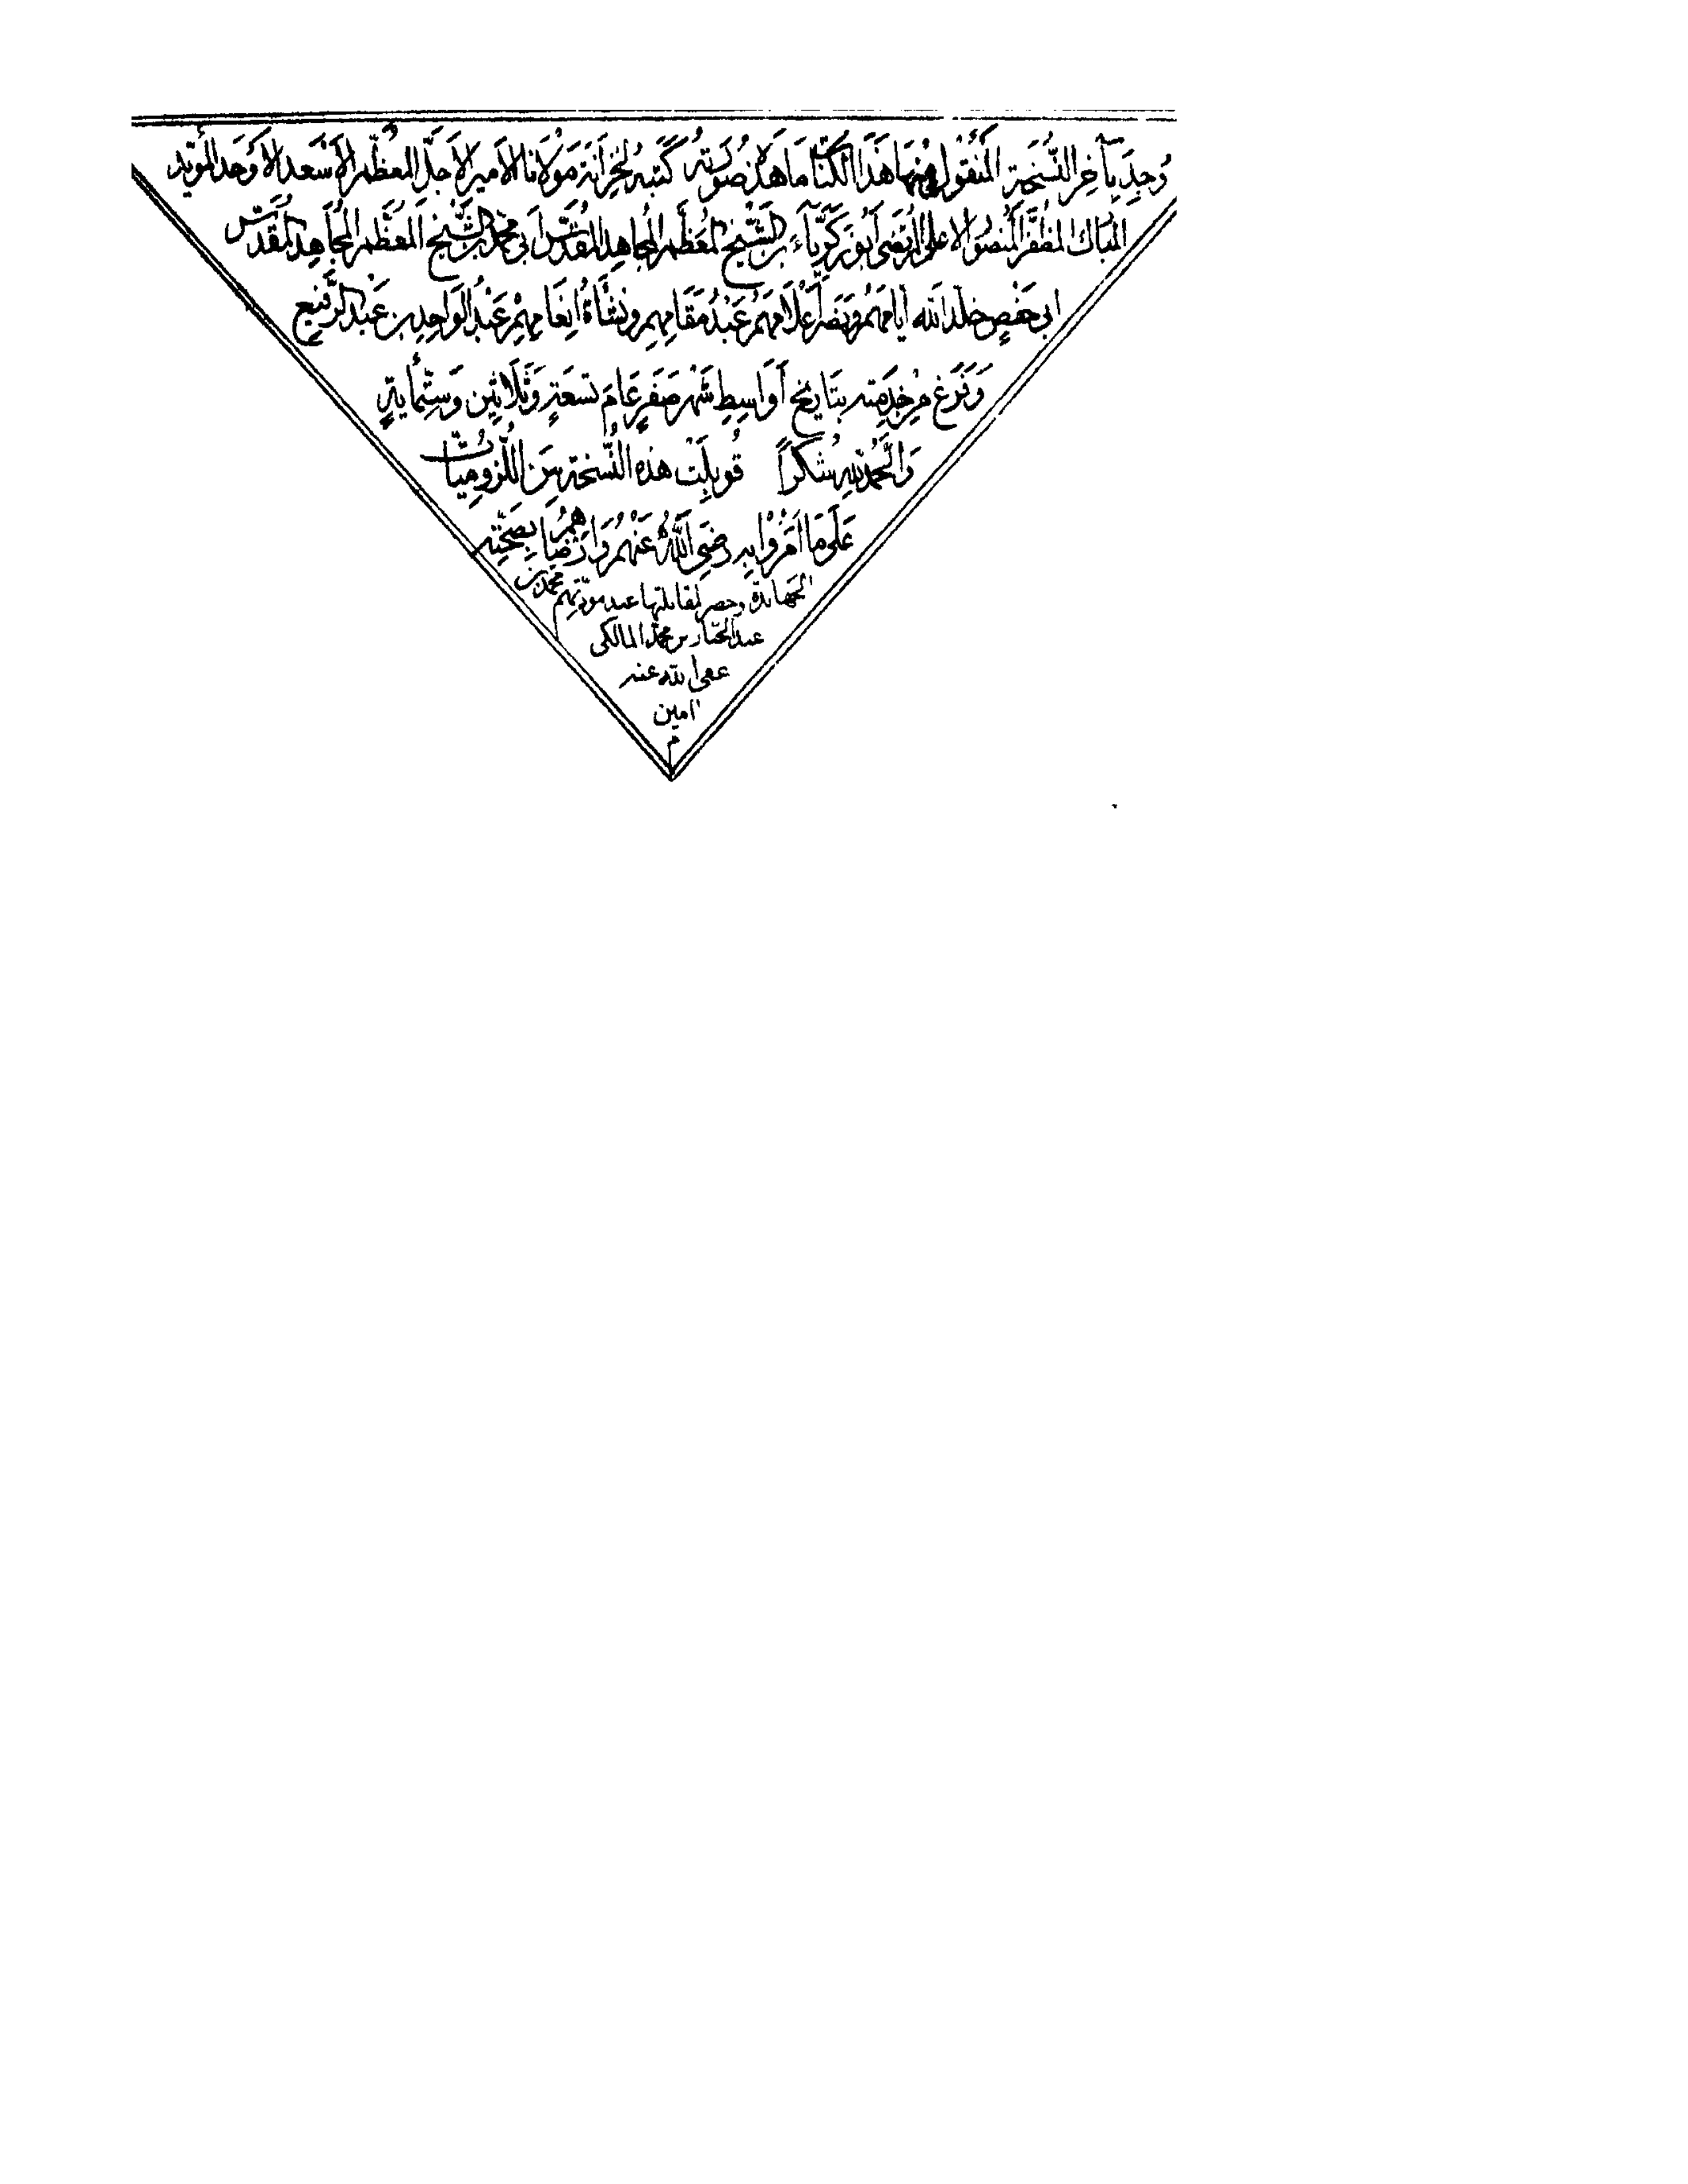 وُجِدَ بِآخِرِ النُّسْخَةِ المَنْقُولِ مِنْهَا هَذَا الكِتَابُ مَا هَذِهِ صُورَتُهُ كَتَبَهُ لِخِزَانَةِ مَوْلَانَا الأَمِيرِ الأَجَلِّ المُعَظَّمِ الأَسْعَدِ الأَوْحَدِ المُؤَيَّدِ
المُبَارَكِ المُظَفَّرِ المَنْصُورِ الأَعْلَى المُرْتَضَى أَبُو زَكَرِيَّاءَ بنِ الشَّيْخِ المُعَظَّمِ المُجَاهِدِ المُقَدَّسِ أَبِي مُحَمَّد بنِ الشَّيْخِ المُعَظَّمِ المُجَاهِدِ المُقَدَّسِ
أبي حَفْصٍ خلد الله أيامَهُمْ ونَصَرَ أَعْلَامَهُمْ عَبْدُ مَقَامِهِم ونَشْأَةُ إنْعَامِهِمْ عَبْدُ الوَاحِدِ بن عَبْد الرَّفِيعِ
وَفَرَغَ مِنْ خِدْمَتِهِ بتَارِيخِ أَوَاسِطِ شَهْرِ صَفَرٍ عَامَ تِسْعَةٍ وَثَلَاثِين وَسِتِّمَايَةٍ
وَالحَمْدُ لِلهِ شُكْراً قُوبِلَتْ هذه النُّسْخَة مِنَ اللُّزُومِيَّاتِ
عَلَى مَا أَمَرُوا بِهِ رَضِيَ اللَّهُ عَنْهُمْ وَأَرْضَاهُمْ بِصَحِّتِهِ
الجهابذة وحضر لمقابلتها عبد مودتهم محمد بن
عبد الجبار بن محمد المالكى
عفى الله عنه
امين
م